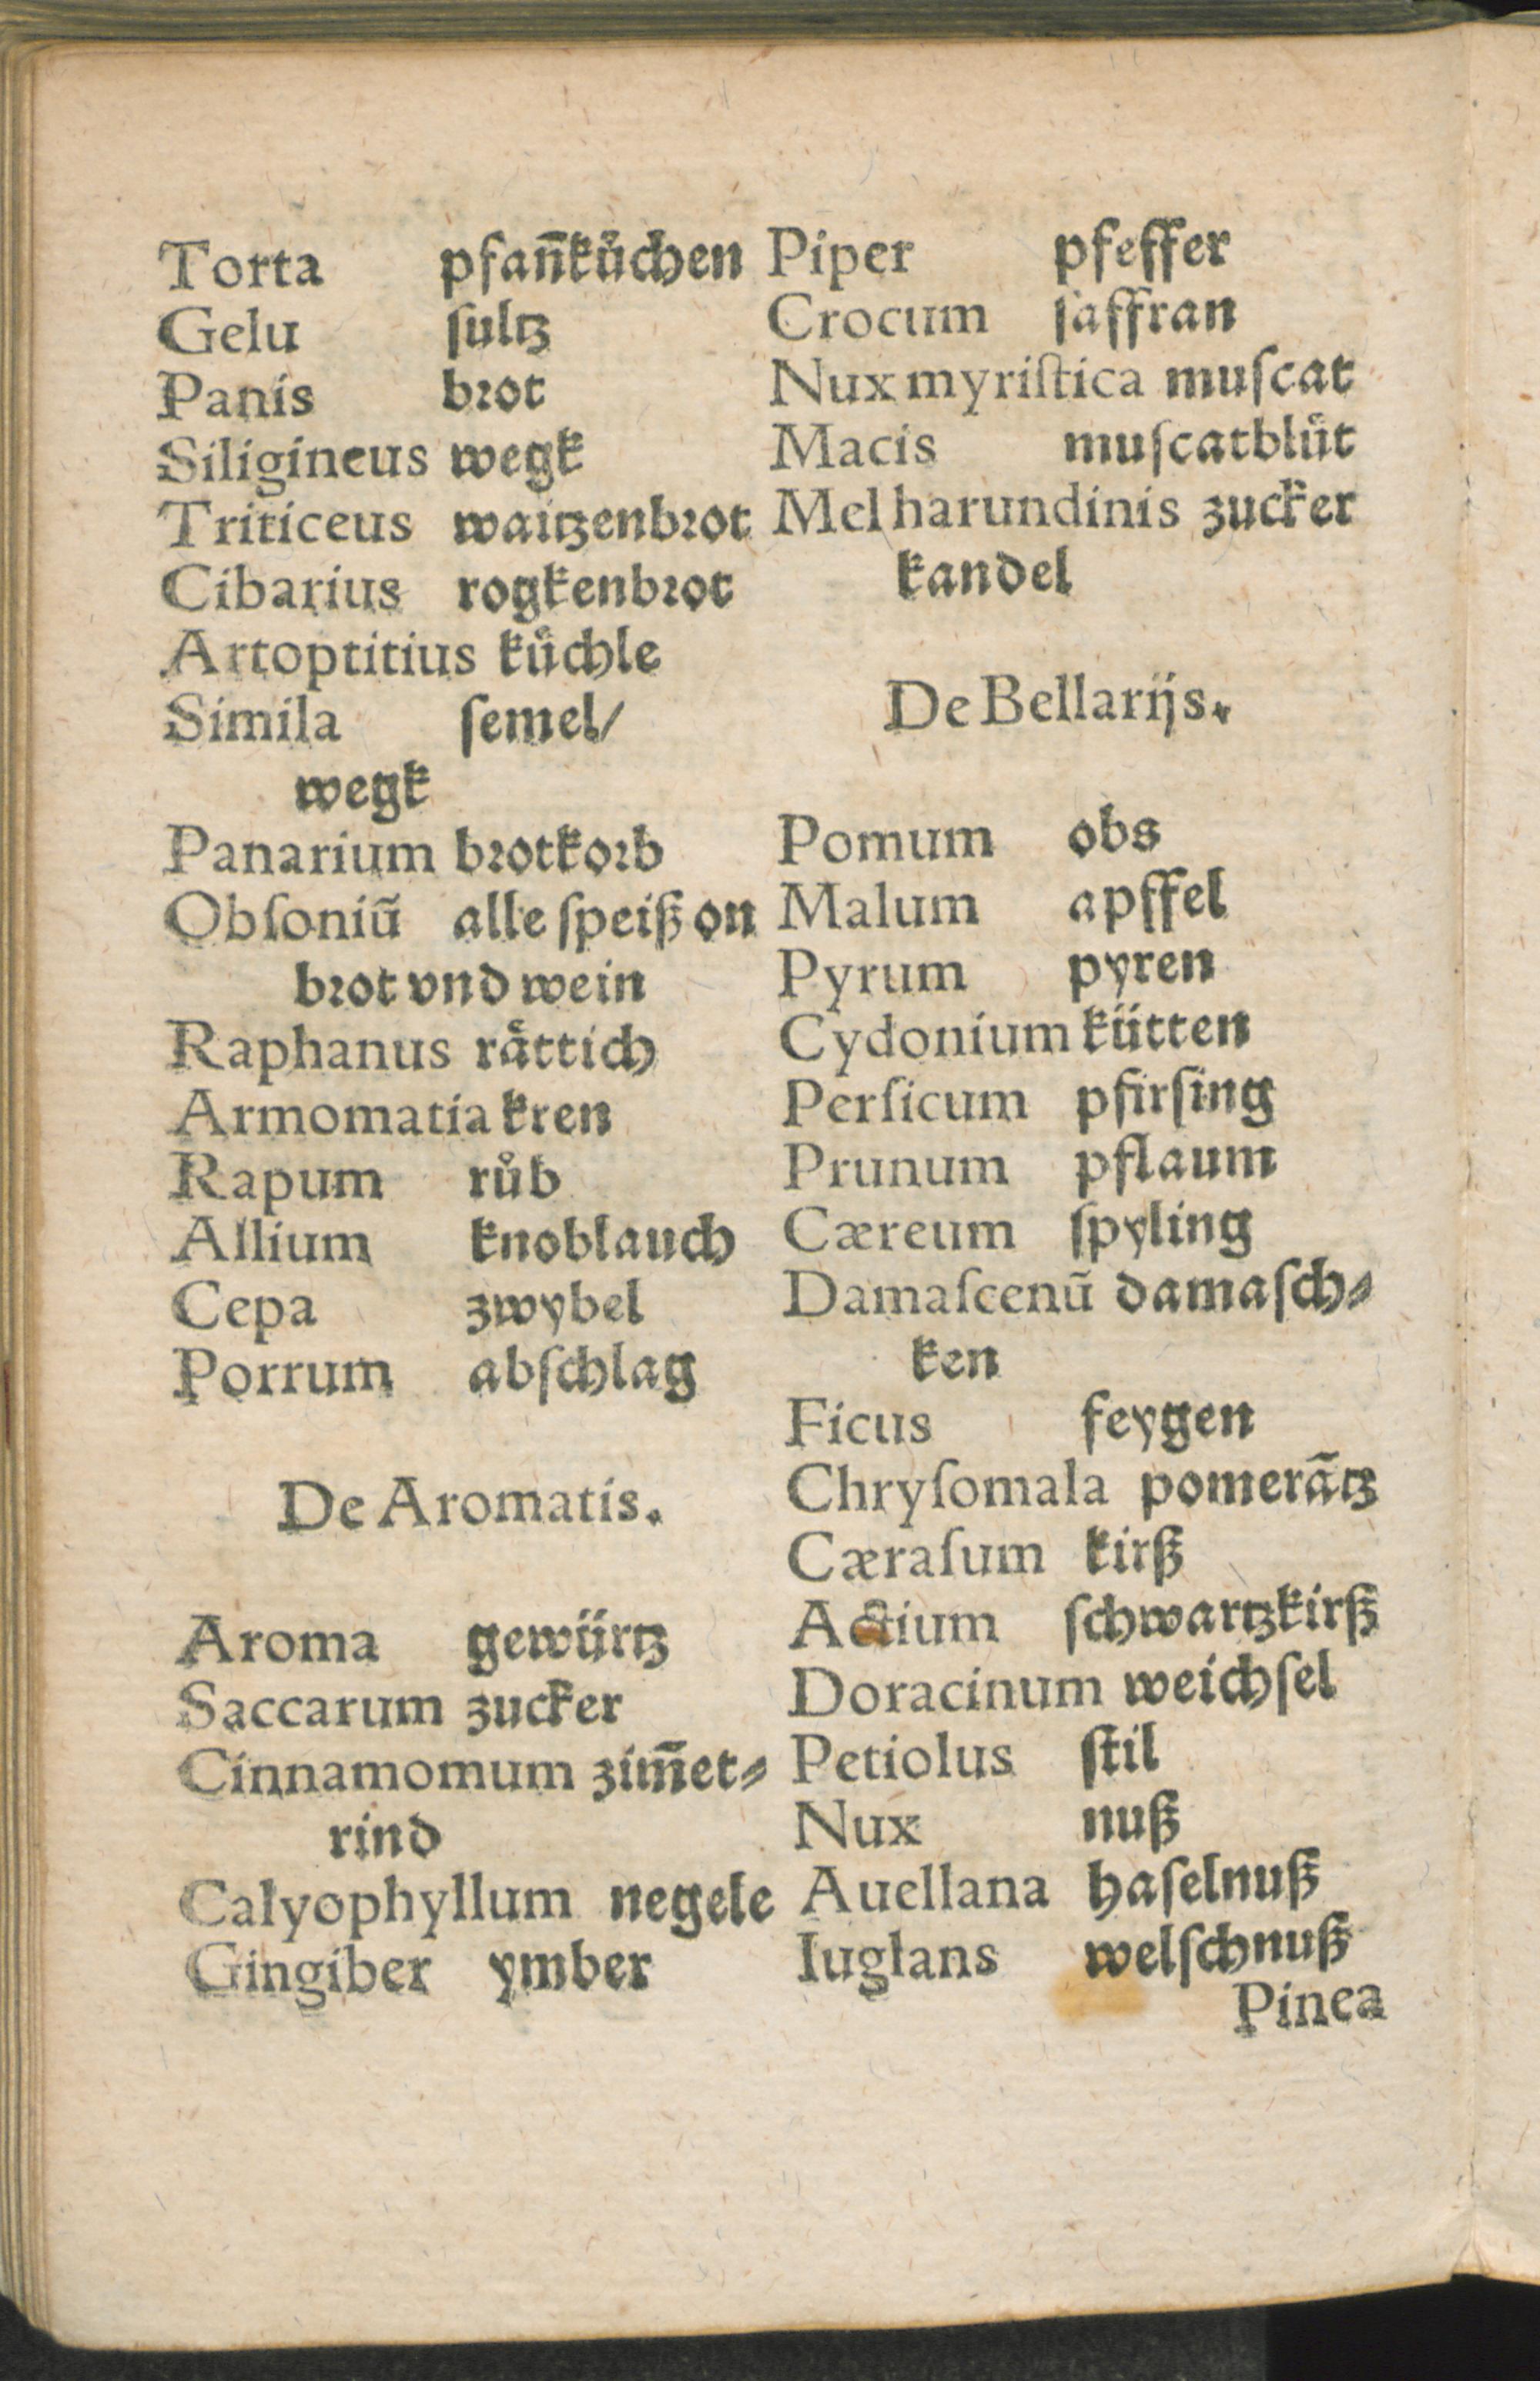 Torta pfan̄kůchen
Gelu ſultz
Panis brot
Siligineus wegk
Triticeus waitzenbrot
Cibarius rogkenbrot
Artoptitius kůchle
Simila ſemel/
wegk
Panarium brotkorb
Obſoniū alle ſpeiß on
brot vnd wein
Raphanus råttich
Armomatia kren
Rapum růb
Allium knoblauch
Cepa zwybel
Porrum abſchlag
De Aromatis.
Aroma gewürtz
Saccarum zucker
Cinnamomum zim̄et⸗
rind
Calyophyllum negele
Gingiber ymber
Piper pfeffer
Crocum ſaffran
Nux myriſtica muſcat
Macis muſcatblůt
Mel harundinis zucker
kandel
De Bellarijs.
Pomum obs
Malum apffel
Pyrum pyren
Cydonium kütten
Perſicum pfirſing
Prunum pflaum
Cæreum ſpyling
Damaſcenū damaſch⸗
ken
Ficus feygen
Chryſomala pomerātz
Cæraſum kirß
Actium ſchwartzkirß
Doracinum weichſel
Petiolus ſtil
Nux nuß
Auellana haſelnuß
Iuglans welſchnuß
Pinea